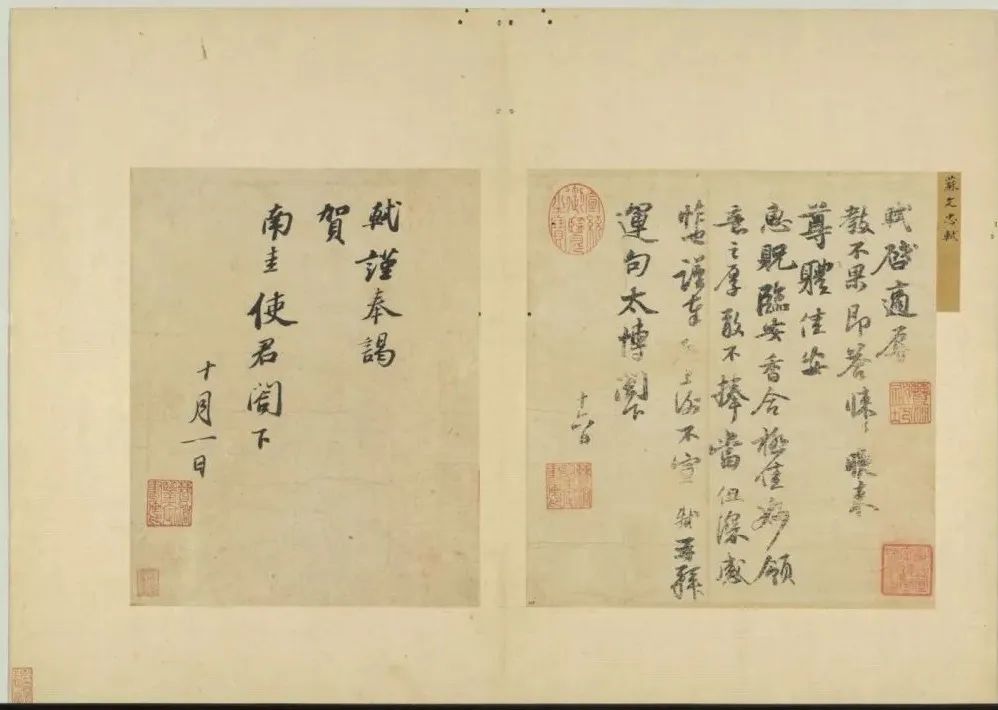 蘇文忠軾
軾啓適辱
教不果即答悚悚晚來
尊體佳安
惠貺臨安香合極佳妙領
意之厚敢不捧當但深感
怍也謹奉 上謝不宣 軾再拜
運句太博閣下
十六日
軾謹奉謁
賀
南圭使君閣下
十月一日